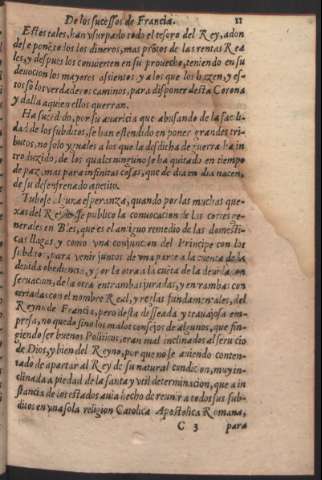 De los sucessos de Francia. 11
Estos tales, han vsurpado todo el tesoro del Rey, adon
de se ponē todos los dineros, mas prōtos de las rentas Rea
les, y despues los conuierten en su prouecho, teniendo en su
deuocion los mayores assientos y a los que los hazen, y es-
tos sō los verdaderos caminos, para disponer desta Corona
y dalla a quien ellos querran.
Ha sucedido, por su auaricia que abusando de la facili
dad de los subditos, se han estendido en poner grandes tri-
butos, no solo yguales a los que la desdicha de guerra ha in
troduzido, de los quales ninguno se ha quitado en tiempo
de paz, mas para infinitas cosas, que de dia en dia nacen,
de su desenfrenado apetito.
Tubose alguna esperanza, quando por las muchas que-
xas del Reyno se publico la conuocacion de las cortes ge-
nerales en Bles, que es el antiguo remedio de las domesti-
cas llagas y como vna conjuncion del Principe con los
subditos, para venir juntos de vna parte a la cuenta de la
deuida obediencia, y por la otra a la cuita de la deuida con
seruacion, de la otra entrambas juradas, y entrambas con
cortadas con el nombre Real, y reglas fundamentales, del
Reyno de Francia, pero desta desseada y trauajosa em-
presa, no queda sino los malos consejos de algunos, que fin-
giendo ser buenos Politicos, eran mal inclinados al seruicio
de Dios, y bien del Reyno, por que no se auiendo conten-
tado de apartar al Rey de su natural condicion, muy in-
clinada a piedad de la santa y vtil determinacion, que a in
stancia de los estados auia hecho de reunir a todos sus sub-
ditos en vna sola religion Catolica Apostolica Romana,
C 3 para